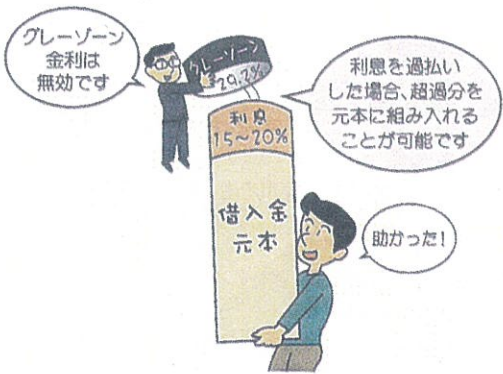 グレーゾーン
金利は
無効です
グレーゾーン
29.2%
利息を過払い
した場合、超過分を
元本に組み入れる
ことが可能です
利息
15～20%
借入金
元本
助かった!